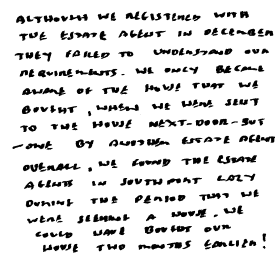 ALTHOUGH WE REGISTERED WITH
THE ESTATE AGENT IN DECEMBER
THEY FAILED TO UNDERSTAND OUR
REQUIREMENTS. WE ONLY BECAME
AWARE OF THE HOUSE THAT WE
BOUGHT, WHEN WE WERE SENT
TO THE HOUSE NEXT-DOOR-BUT
-ONE BY ANOTHER ESTATE AGENT
OVERALL, WE FOUND THE ESTATE
AGENTS IN SOUTHPORT LAZY
DURING THE PERIOD THAT WE
WERE SEEKING A HOUSE. WE
COULD HAVE BOUGHT OUR
HOUSE TWO MONTHS EARLIER!